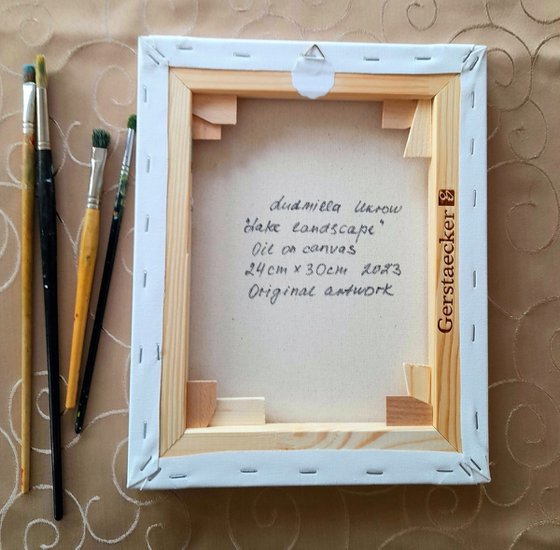 Ludmilla Ukrow
"Lake landscape"
Oil on canvas
24cm x 30cm 2023
Original artwork
Gerstaecker